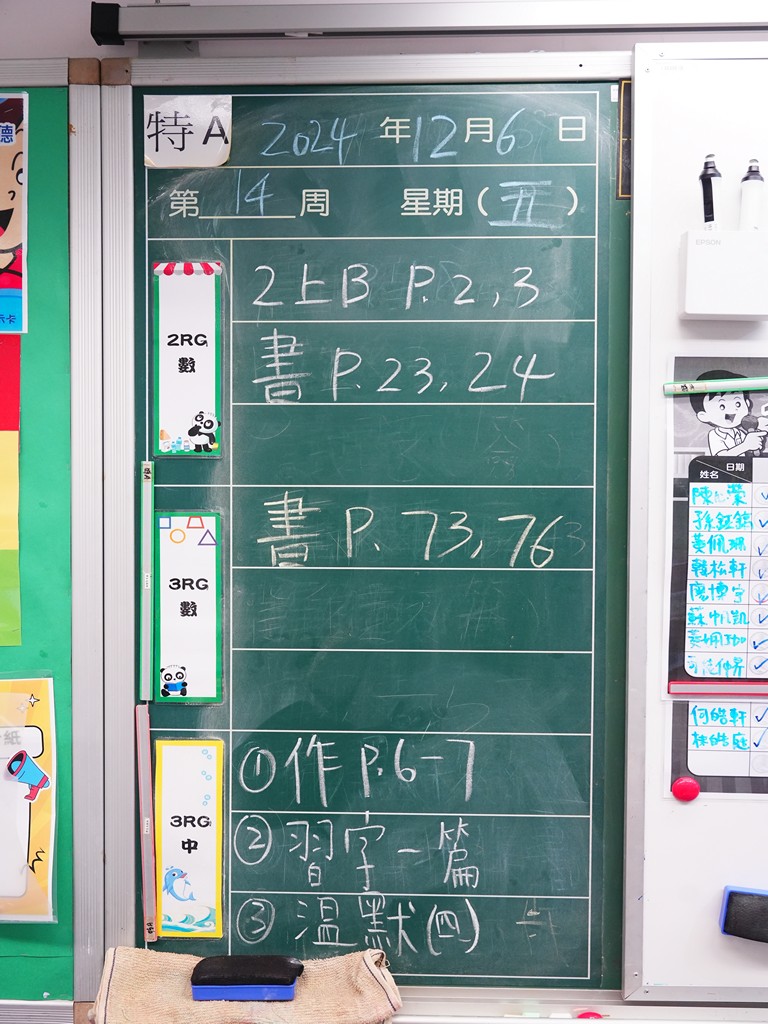 特A 2024年12月6日
第14周 星期(五)
2RG
數
2上B P.2,3
書 P.23,24
3RG
數
書 P.73,76
3RG
中
①作 P.6-7
②習字一篇
③溫默(四)
EPSON
姓名 日期
孫鈺鎬
黃佩珊
韓松軒
廖博宇
蘇中凱
何皓軒
林皓庭
德
示卡
紙